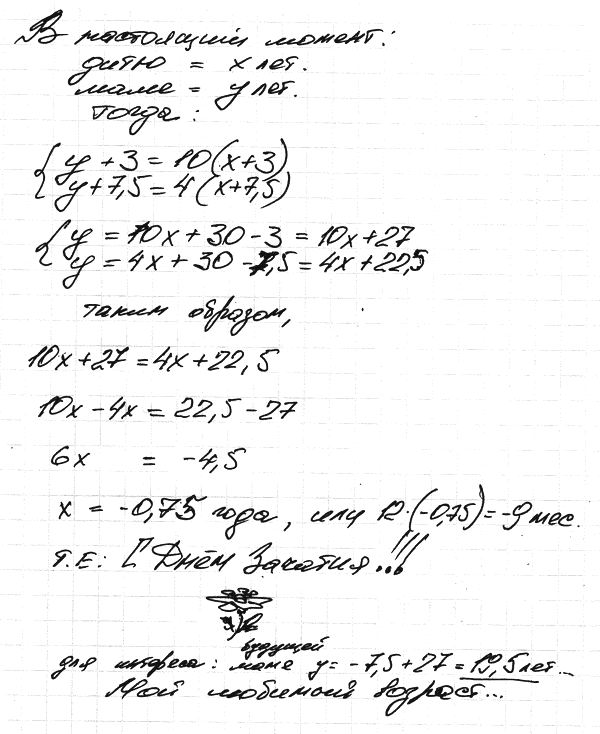 В настоящий момент:
дитю = x лет.
маме = y лет.
Тогда:
{ y + 3 = 10(x+3)
y + 7,5 = 4(x+7,5)
{ y = 10x + 30 - 3 = 10x + 27
y = 4x + 30 - 7,5 = 4x + 22,5
таким образом,
10x + 27 = 4x + 22,5
10x - 4x = 22,5 - 27
6x = -4,5
x = -0,75 года, или 12·(-0,75) = -9 мес.
Т.Е: С Днём Зачатия!!!
будущей
для интереса: маме y = -7,5 + 27 = 19,5 лет...
Мой любимый возраст...